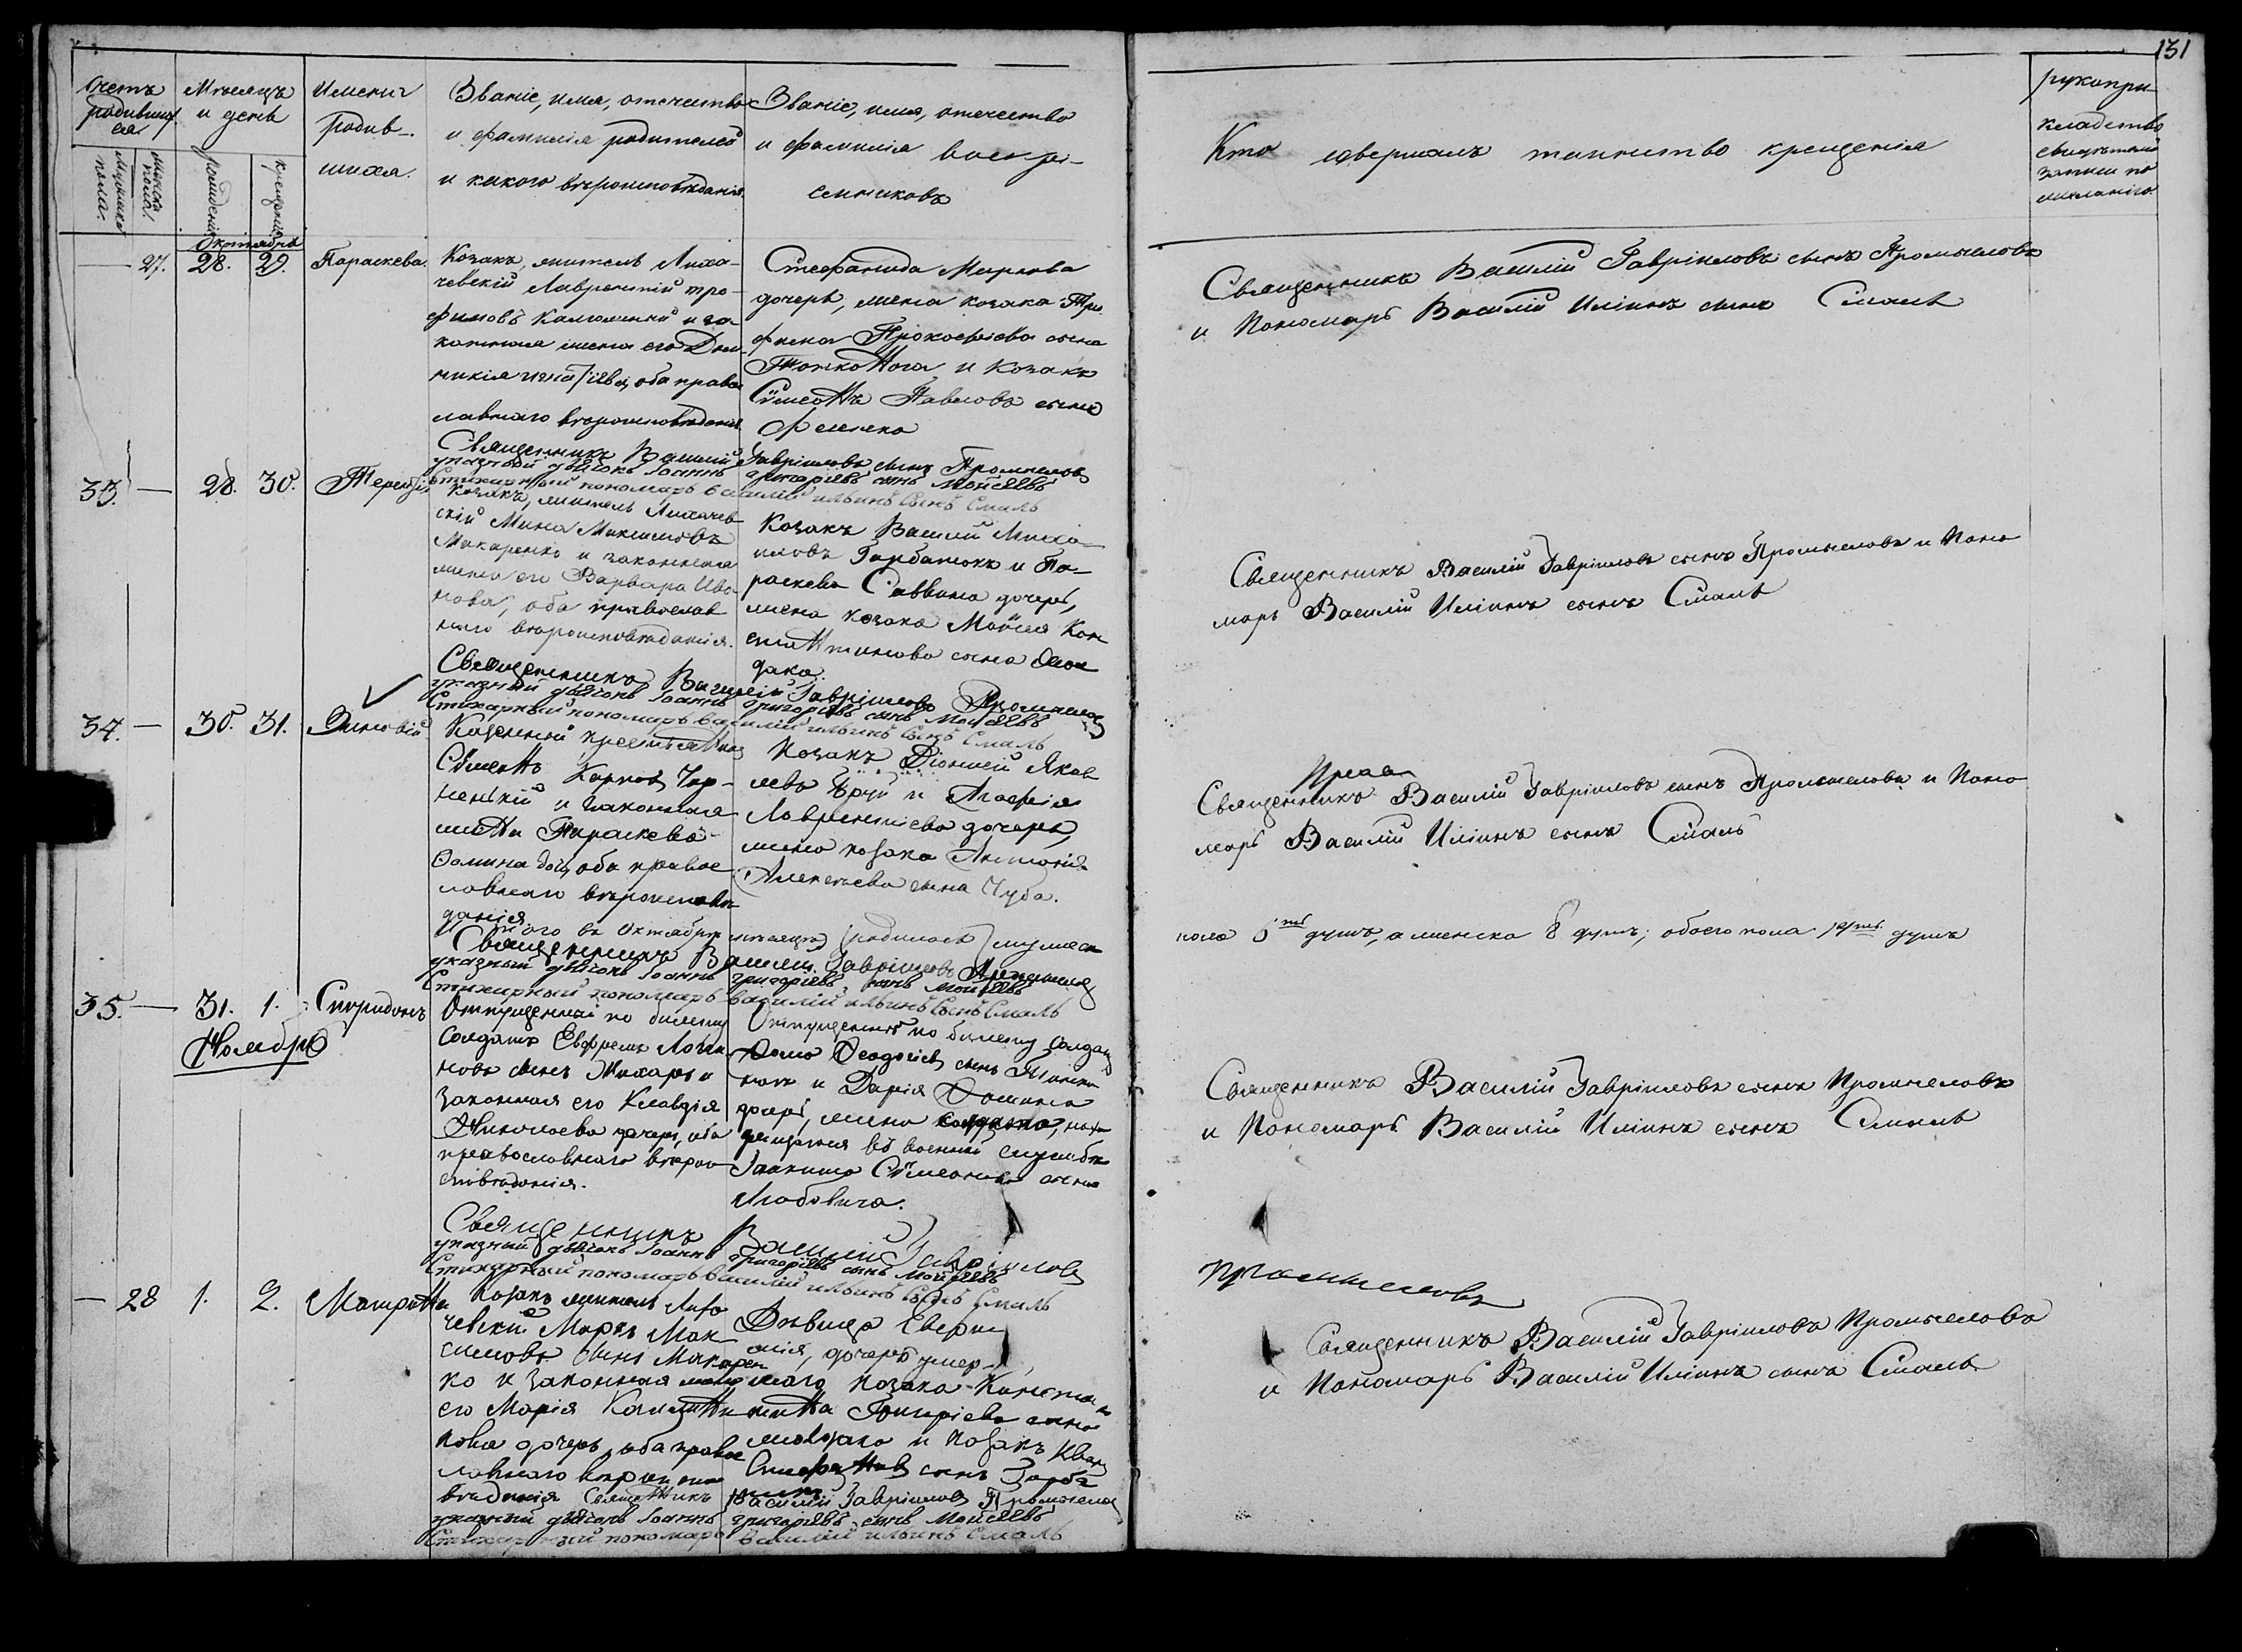 131
Счетъ родившихся
Мѣсяцъ и день
Имена родившихся.
Званіе, имя, отечество и фамилія родителей и какого вѣроисповѣданія.
Званіе, имя, отечество и фамилія воспріемниковъ
Кто совершалъ таинство крещенія
рукоприкладство свидѣтелей записи по желанію
мужска пола.
женска пола.
рожденія
крещенія
Октября
27. 28. 29. Параскева.
Козакъ, житель Лиха-
чевскій Лаврентій Тро-
фимовъ и за-
конная жена его Дом-
никія оба право
славнаго вѣроисповѣданія
Стефанида Маркова
дочерь, жена козака Тро
фима Прокофіева сына
и Козакъ
Симеонъ Павловъ сынъ
Священникъ Василій Гавріиловъ сынъ Промысловъ
и Пономарь Василій Иліинъ сынъ Смаль
Священникъ Василій Гавріиловъ сынъ Промысловъ
указный дьяконъ Іоаннъ григоріевъ сынъ Моисеевъ
Стихарный пономарь василій ильинъ сынъ Смаль
33. 28. 30. Терентій
Козакъ, житель Лихачев
скій Мина Максимовъ
Макаренко и законная
жена его Варвара Ива
нова, оба православ
наго вѣроисповѣданія.
Козакъ Василій Миха-
иловъ Горбатюкъ и Па-
раскева Саввина дочерь,
жена козака Моѵсея Кон
стантинова сына
дака.
Священникъ Василій Гавріиловъ сынъ Промысловъ и Поно
марь Василій Иліинъ сынъ Смаль
Священникъ Василій Гавріиловъ Промысловъ
указный дьяконъ Іоаннъ григоріевъ сынъ Моисеевъ
Стихарный пономарь василій ильинъ сынъ Смаль
34. 30. 31. Зиновій
Казенный крестьянинъ
Сѵмеонъ Карповъ Чор-
нецкій и законная
жена Параскева
Ѳомина доч, оба право
славнаго вѣроисповѣ
данія
Козакъ Діонисій Яков
левъ и Агафія
Лаврентіева дочерь,
жена козака Антонія
Алексѣева сына Чуба.
Священникъ Василій Гавріиловъ сынъ Промысловъ и Поно
марь Василій Иліинъ сынъ Смаль
Итого въ Октябрѣ мѣсяцѣ родилось мужеска
пола 6 душъ, а женска 8 душъ; обоего пола душъ
Священникъ Василій Гавріиловъ Промысловъ
указный дьяконъ Іоаннъ григоріевъ сынъ Моисеевъ
Стихарный пономарь василій ильинъ сынъ Смаль
35. 31. 1. Спиридонъ
Ноембрь
Отпущенный по билету
солдатъ Евфремъ Логи
новъ сынъ и
законная его Клавдія
Николаева дочерь, оба
православнаго вѣрои
сповѣданія.
Отпущенный по билету солдатъ
Ѳома Ѳеодосіевъ сынъ
и Дарія Ѳомина
дочерь, жена солдата, нахо
дящагося въ военной службѣ
Іоакима Сѵмеонова сына
Священникъ Василій Гавріиловъ сынъ Промысловъ
и Пономарь Василій Иліинъ сынъ Смаль
Священникъ Василій Гавріиловъ Промысловъ
указный дьяконъ Іоаннъ григоріевъ сынъ Моисеевъ
Стихарный пономарь василій ильинъ сынъ Смаль
28 1. 2. Матрона
Козакъ житель Лиха
чевскій Марко Мак
симовъ сынъ Макарен
ко и законная жена
его Марія
кова дочерь, оба право
славнаго вѣроиспо
вѣданія
Дѣвица Евфи
мія, дочерь умер-
шаго козака Констан
тина Григоріева сына
и козакъ
Стефановъ сынъ
Священникъ Василій Гавріиловъ Промысловъ
и Пономарь Василій Иліинъ сынъ Смаль
Священникъ Василій Гавріиловъ Промысловъ
указный дьяконъ Іоаннъ григоріевъ сынъ Моисеевъ
Стихарный пономарь василій ильинъ Смаль